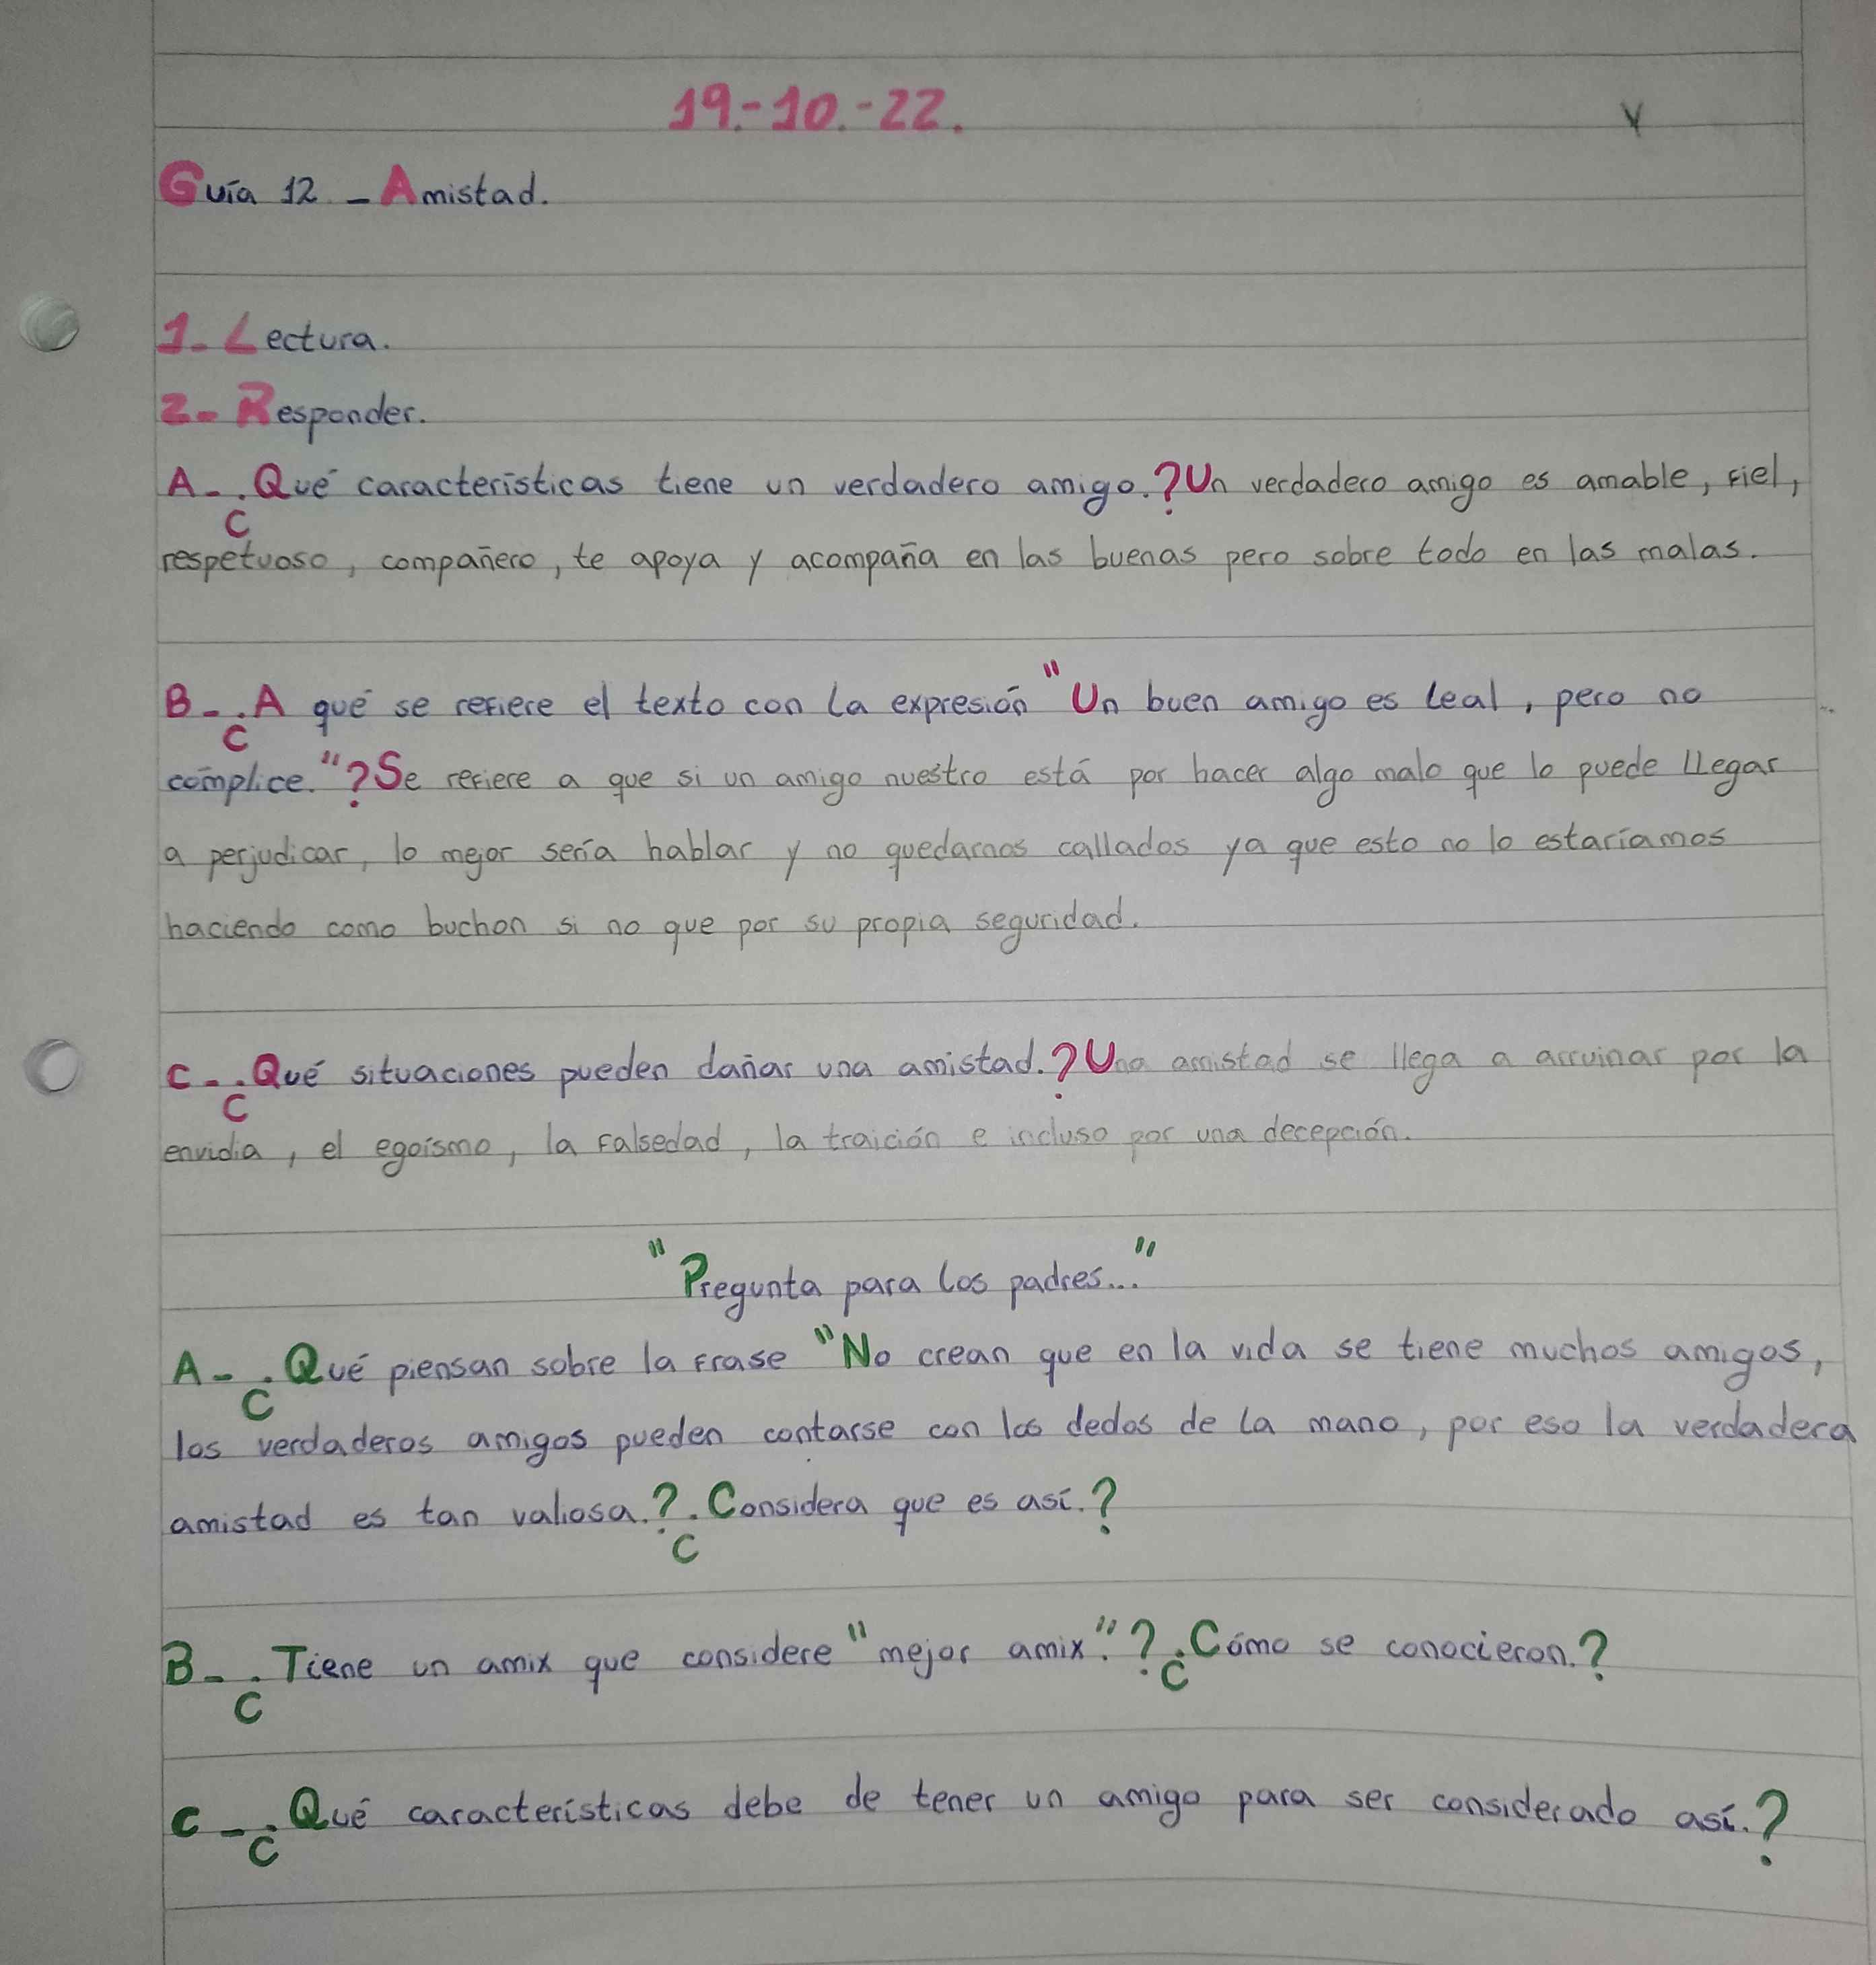 19.-10.-22.
Guía 12 - Amistad.
1- Lectura.
2- Responder.
A- ¿Qué características tiene un verdadero amigo.? Un verdadero amigo es amable, fiel,
respetuoso, compañero, te apoya y acompaña en las buenas pero sobre todo en las malas.
B- ¿A qué se refiere el texto con la expresión "Un buen amigo es leal, pero no
cómplice."? Se refiere a que si un amigo nuestro está por hacer algo malo que lo puede llegar
a perjudicar, lo mejor sería hablar y no quedarnos callados ya que esto no lo estaríamos
haciendo como buchon si no que por su propia seguridad.
C- ¿Qué situaciones pueden dañar una amistad.? Una amistad se llega a arruinar por la
envidia, el egoísmo, la falsedad, la traición e incluso por una decepción.
"Pregunta para los padres..."
A- ¿Qué piensan sobre la frase "No crean que en la vida se tiene muchos amigos,
los verdaderos amigos pueden contarse con los dedos de la mano, por eso la verdadera
amistad es tan valiosa.? ¿Considera que es así.?
B- ¿Tiene un amix que considere "mejor amix."? ¿Cómo se conocieron.?
C- ¿Qué características debe de tener un amigo para ser considerado así.?